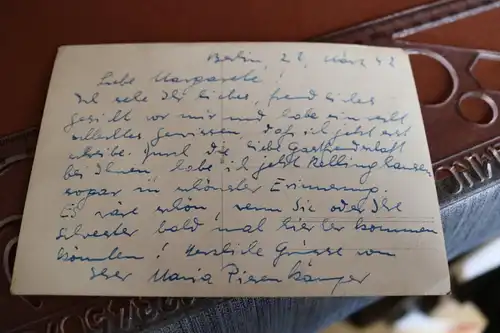 Berlin, 28. März 42
Liebe Margarete!
Ich sehe Ihr liebes, freundliches
Gesicht vor mir und habe ein recht
schlechtes Gewissen, daß ich jetzt erst
schreibe. Durch die liebe Gastfreundschaft
bei Ihnen, habe ich jetzt Rellinghausen
sogar in schönster Erinnerung.
Es wäre schön, wenn Sie oder Ihre
Schwester bald mal hierher kommen
könnten! Herzliche Grüsse von
Ihrer Maria